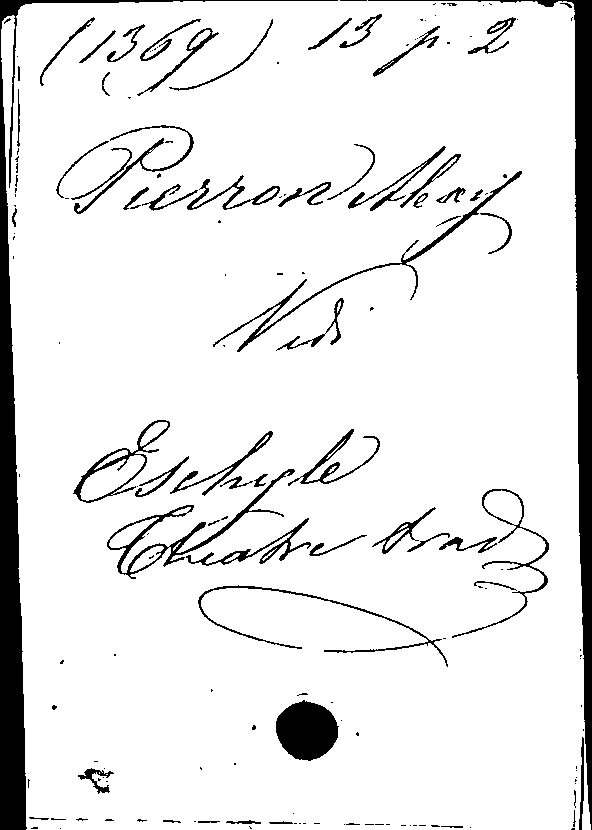 (1369) 13 p. 2
Pierron Alexis
Vedi
Eschyle
Théatre trad